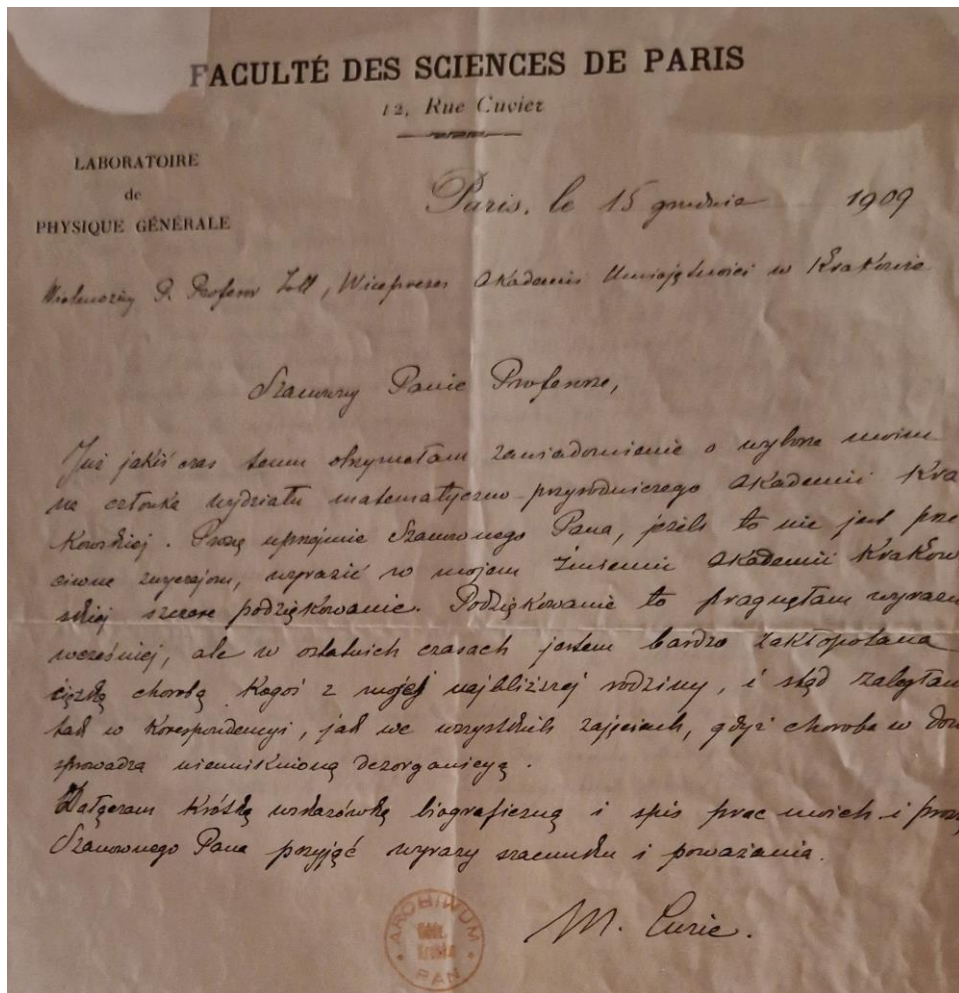 FACULTÉ DES SCIENCES DE PARIS
12, Rue Cuvier
LABORATOIRE
de
PHYSIQUE GÉNÉRALE
Paris, le 15 grudnia 1909
Wielmożny P. Profesor Zoll, Wiceprezes Akademii Umiejętności w Krakowie
Szanowny Panie Profesorze,
Już jakiś czas temu otrzymałam zawiadomienie o wyborze moim
na członka wydziału matematyczno-przyrodniczego Akademii Kra
kowskiej. Proszę uprzejmie Szanownego Pana, jeżeli to nie jest prze
ciwne zwyczajom, wyrazić w mojem imieniu Akademii Krakow
skiej szczere podziękowanie. Podziękowanie to pragnęłam wyrazi
wcześniej, ale w ostatnich czasach jestem bardzo zakłopotana
ciężką chorobą kogoś z mojej najbliższej rodziny, i stąd zaległam
tak w korespondencyi, jak we wszystkich zajęciach, gdyż choroba w dom
sprowadza nieuniknioną dezorganizacyą.
Załączam krótką wskazówkę biograficzną i spis prac moich i pros
Szanownego Pana przyjąć wyrazy szacunku i poważania.
M. Curie.
ARCHIWUM
PAN